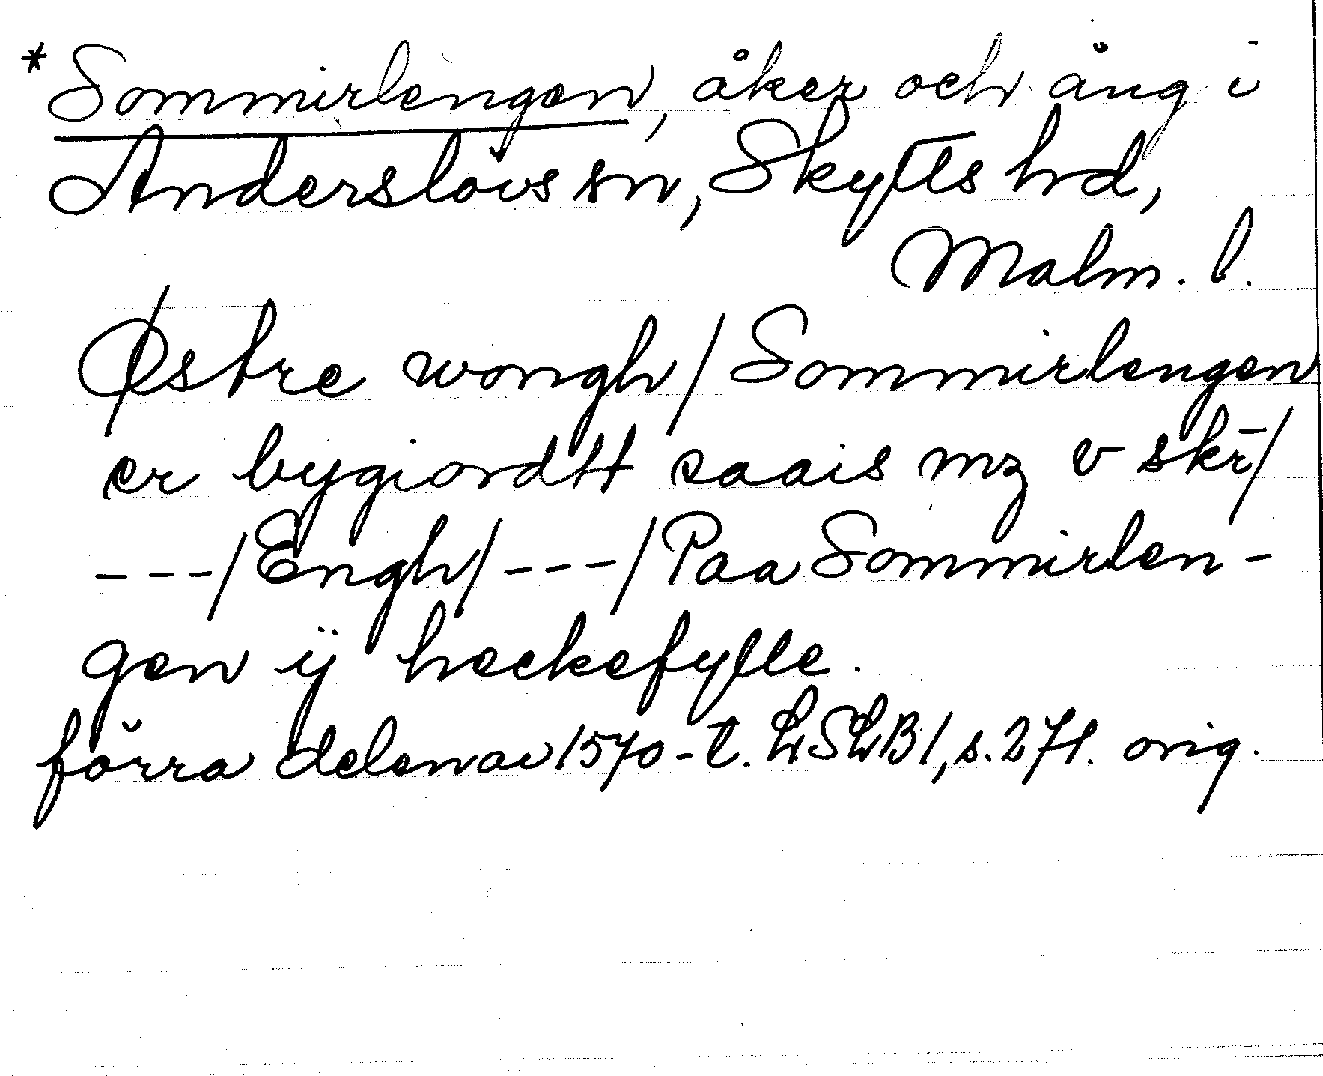 * Sommirlengen, åker och äng i
Anderslövs sn, Skytts hd,
Malm. l.
Østre wongh/Sommirlengen
er bygiordtt saais mz v skr̄/
---/Engh/---/Paa Sommirlen-
gen ij heckefylle.
förra delen av 1570-t. LSLB1, s. 271. orig.